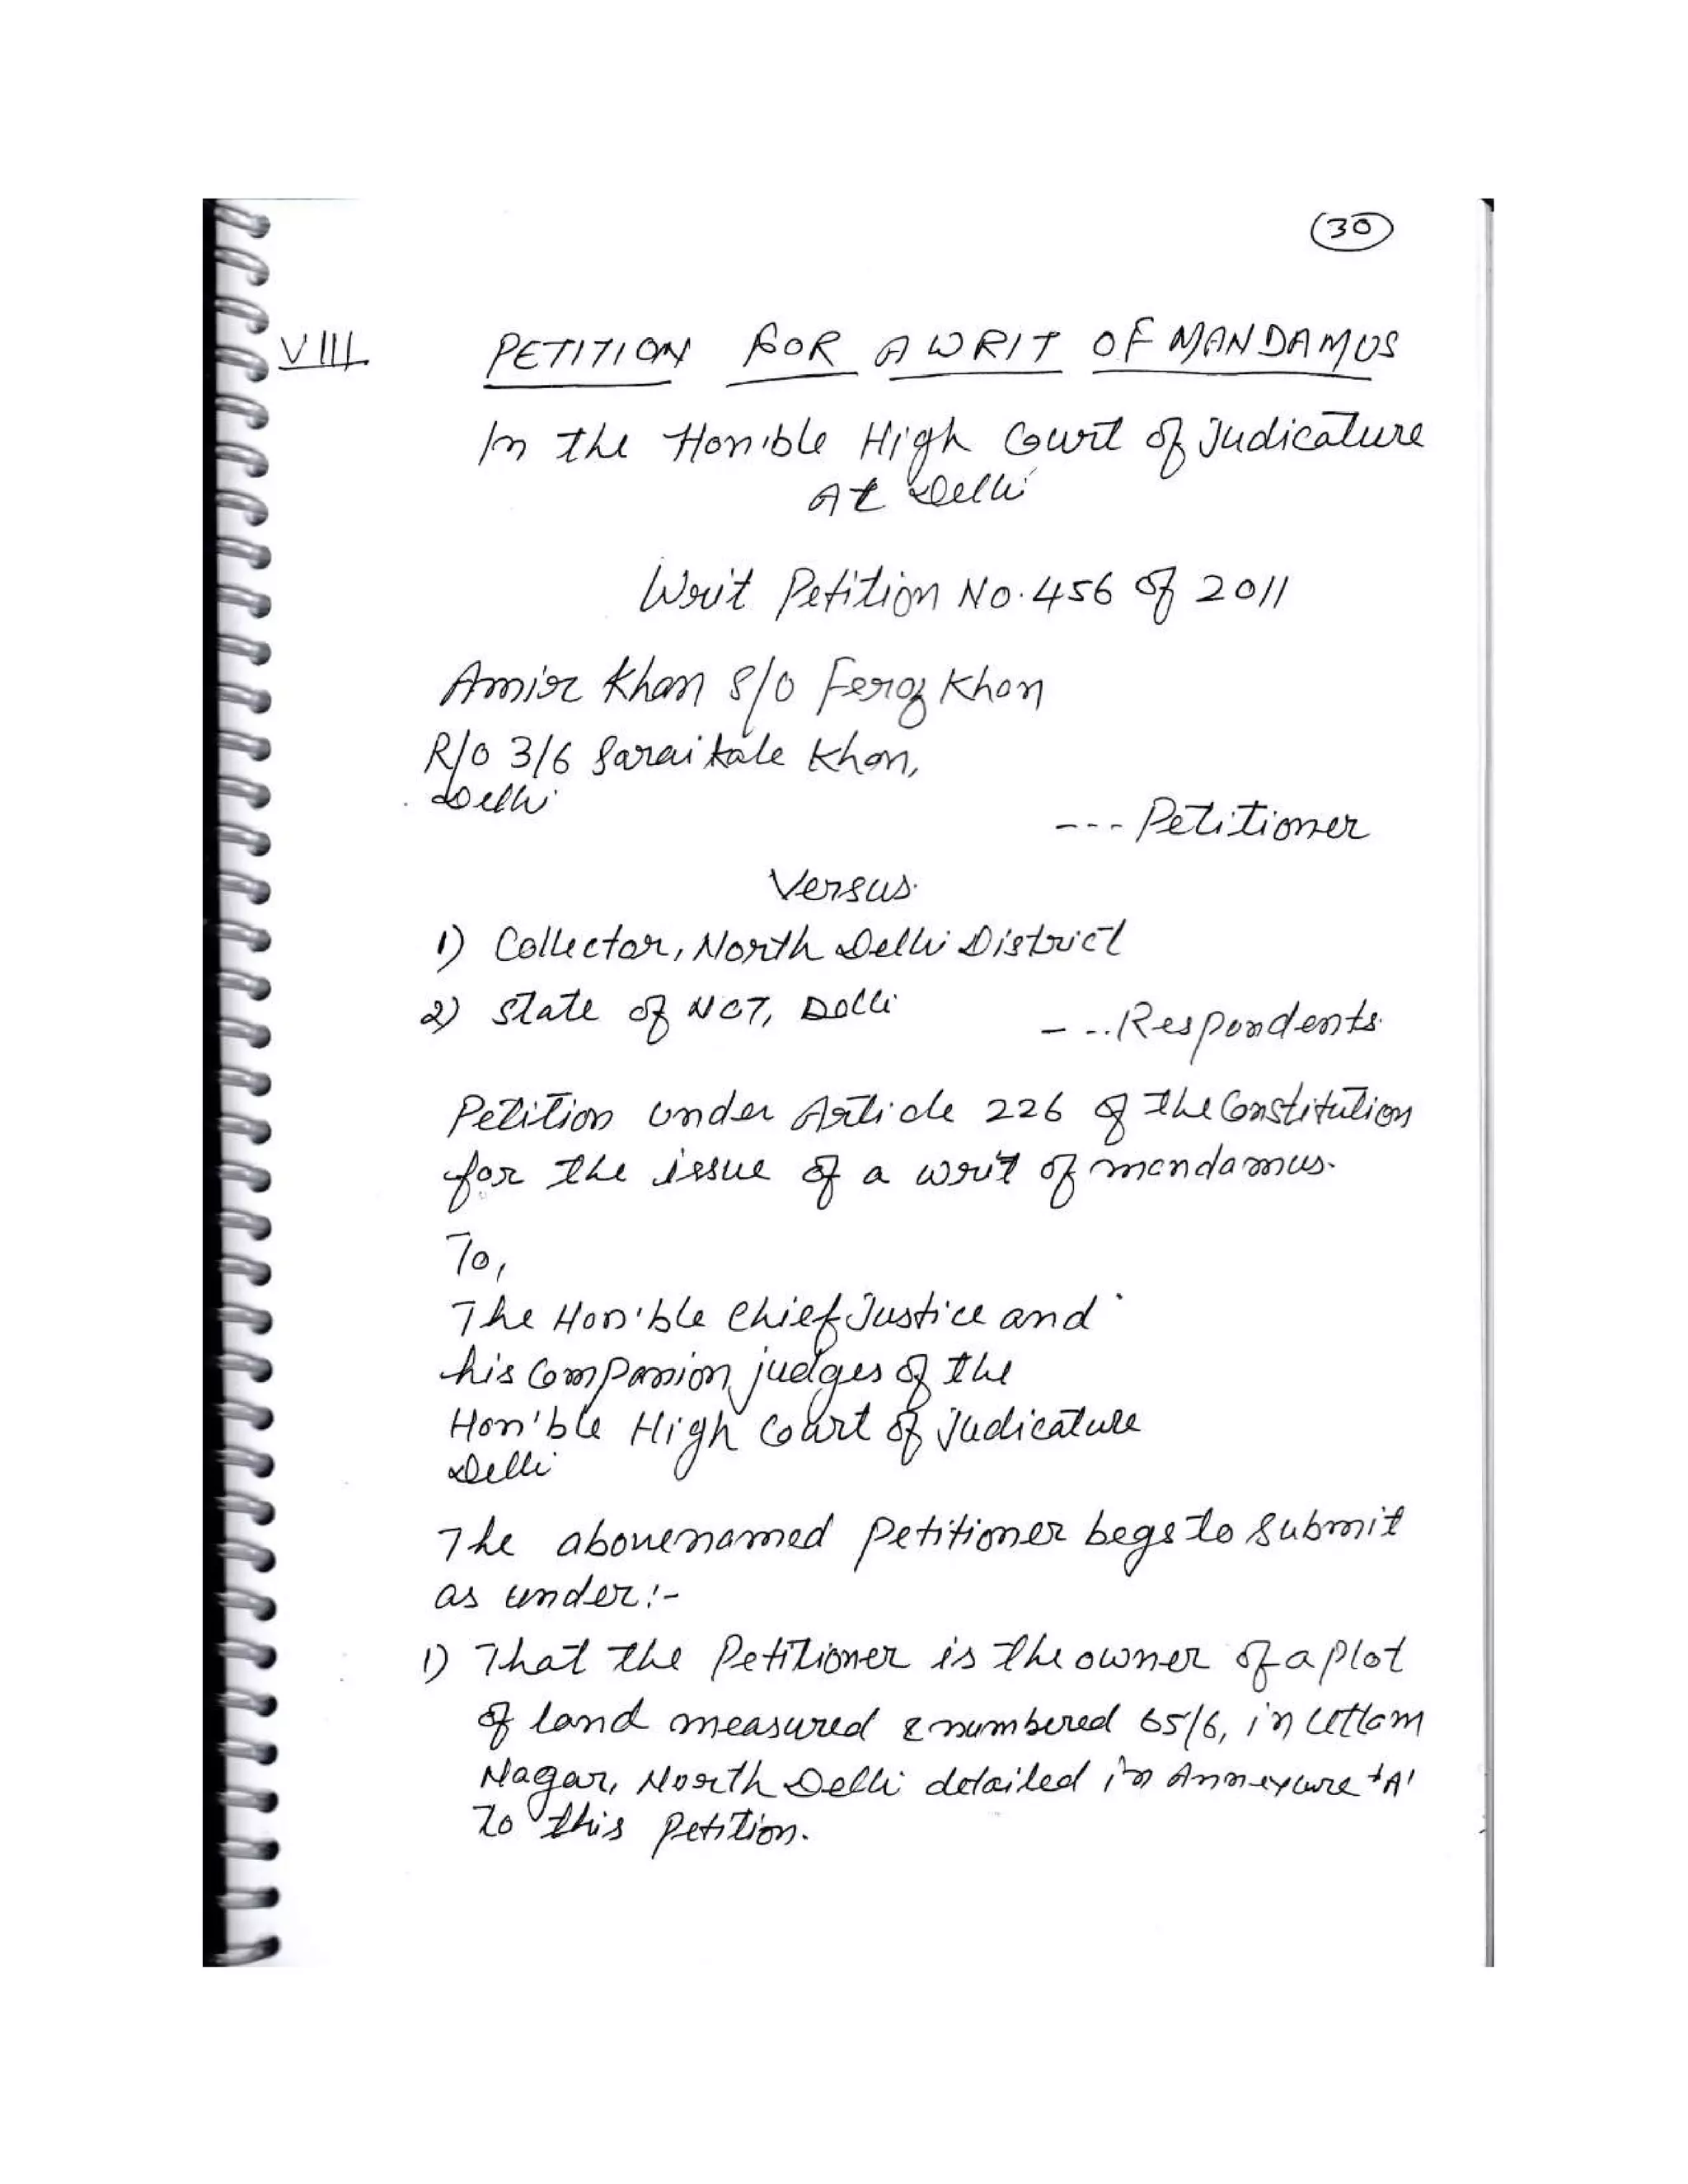 30
VIII PETITION FOR A WRIT OF MANDAMUS
In the Hon'ble High Court of Judicature
At Delhi
Writ Petition No. 456 of 2011
Amir Khan S/o Feroz Khan
R/o 3/6 Sarai kale Khan,
Delhi
--- Petitioner
Versus
1) Collector, North Delhi District
2) State of NCT, Delhi
- -.. Respondents
Petition under Article 226 of the Constitution
for the issue of a writ of mandamus.
To,
The Hon'ble Chief Justice and
his Companion judges of the
Hon'ble High Court of Judicature
Delhi
The abovenamed Petitioner begs to submit
as under:-
1) That the Petitioner is the owner of a plot
of land measured & numbered 65/6, in Uttam
Nagar, North Delhi detailed in Annexure 'A'
To this Petition.